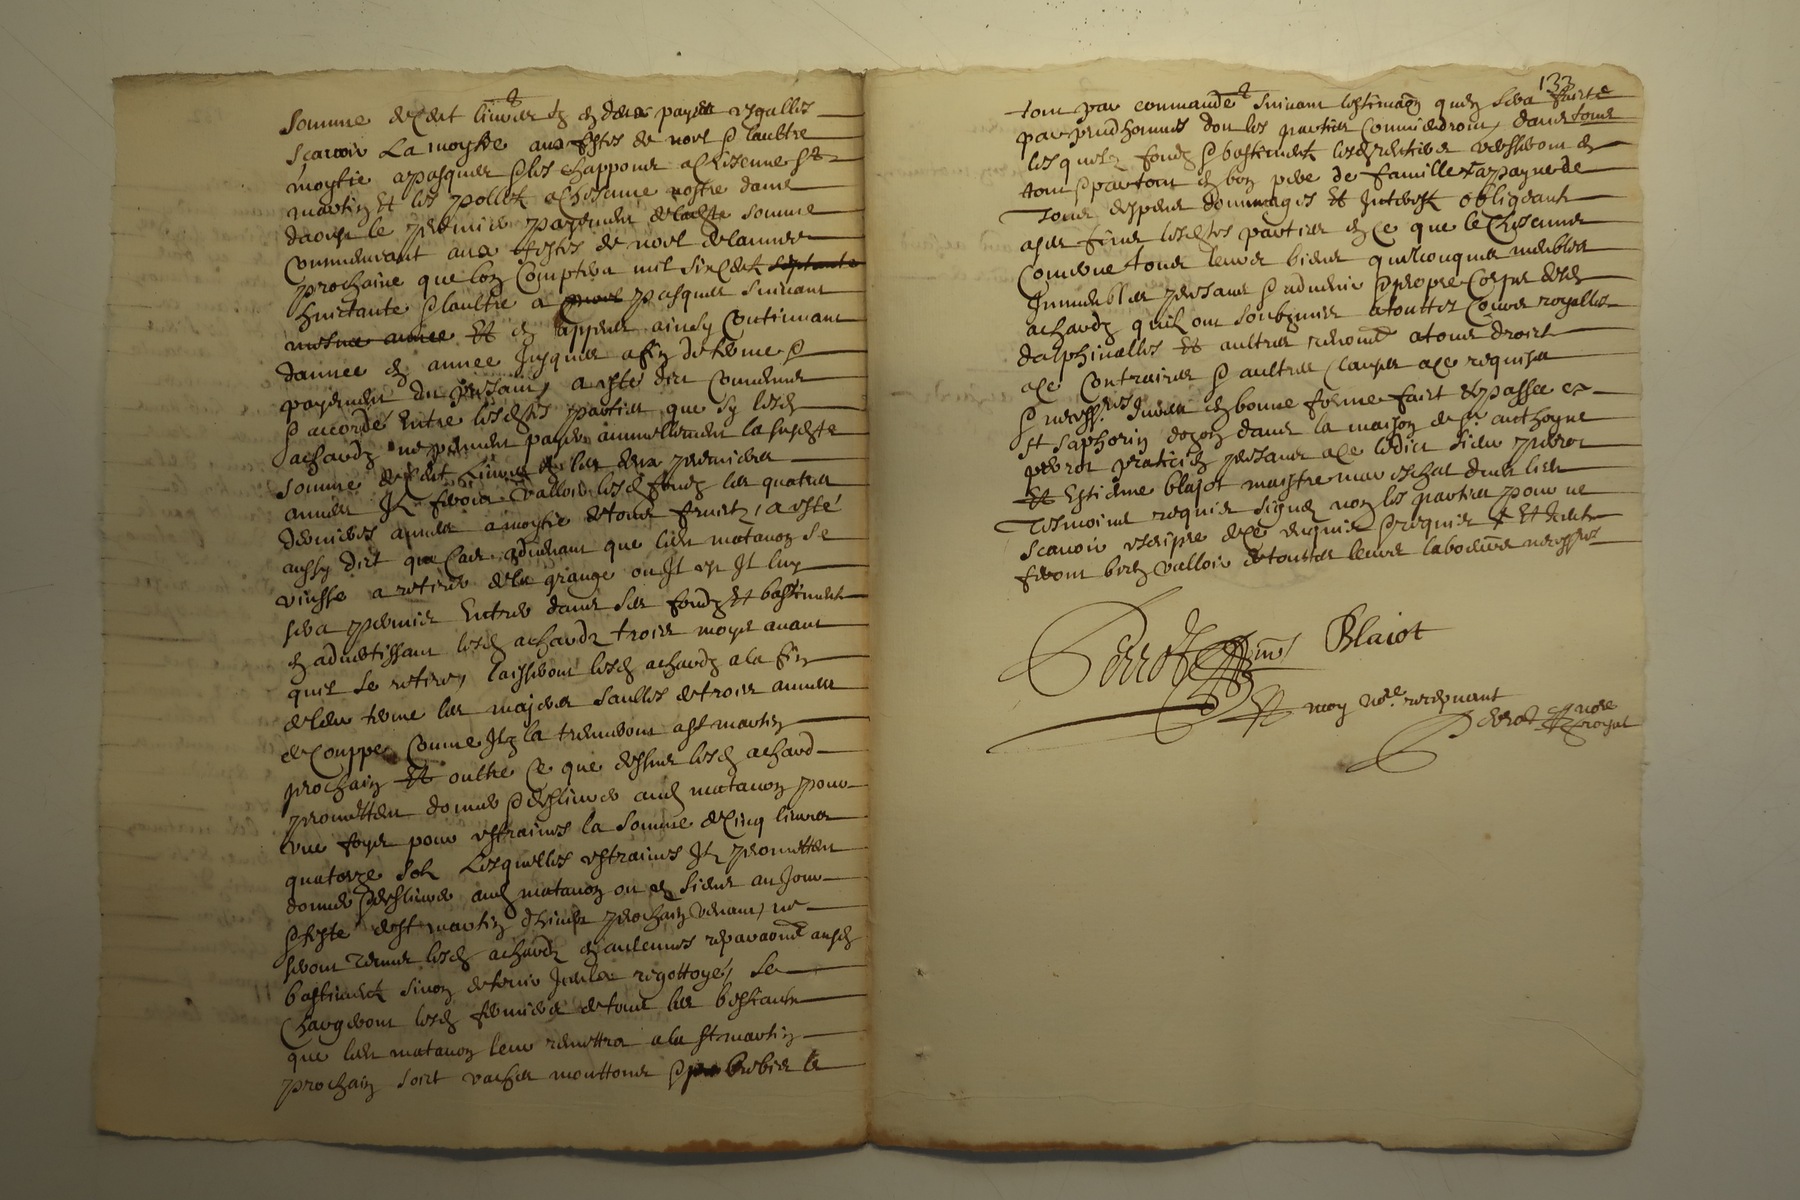 somme de cent livres tz en deux payes esgalles
scavoir La moytie aux festes de noel & laultre
moytie a pasques & les chappons a chascune st
martin Et les polletz a chascune nostre dame
daoust le premier payement de ladte somme
commencant aux festes de noel de lannee
prochaine que lon comptera mil six cent septante
huictante & laultre a pasques suivant
mesme annee Et en appres ainsy continuant
dannee en annee Jusques a fin de ferme &
payement du present, a este dict convenu
& accorde Entre lesdtes parties que sy lesd
achardz ne peuvent payer annuellement la susdte
somme de cent Livres les deux premieres
annees Ilz feront valloir lesd fondz les quatres
dernieres annees a moytie de tous fruictz, a esté
aussy dict que cas advenant que led matanon se
vinsse a retirer de la grange ou Il est Il luy
sera permis Entrer dans ses fondz Et bastiment
en advertissant lesd achardz trois moys avant
quil se retire, laisseront lesd achardz a la fin
de leur terme les majeres saulles de trois annees
de couppe comme Ilz la treuveront a st martin
prochain Et oultre ce que dessus lesd achard
promettent donner & deslivrer aud matanon pour
une foys pour estraines la somme de cinq livres
quatorze solz Lesquelles estraines Ilz promettent
donner & deslivrer aud matanon ou es siens au Jour
& feste de st martin dhiver prochain venant, ne
seront tenus lesd achardz en aulcunes reparaons ausd
bastimentz sinon de tenir Iceulx regottoyés, se
chargeront lesd fermiers de tous les bestiaulx
que led matanon leur remettra a la st martin
prochain soit vaches mouttons & brebis le
133
tout par commande suivant lestimaon quen sera faicte
par prudhommes dont les parties conviendront, dans tous
lesquelz fondz & bastimentz lesd rentiers verseront en
tout & par tout en bon pere de famille a payne de
Tous despens dommages Et Interestz obligeant
a ses fins lesdtes parties en ce que le chascune
concerne tous leurs biens quelconques meubles
Immeubles presans & advenir & propre corps desd
achardz quilz ont soubzmis a touttes cours royalles
dalphinalles Et aultres renoncé a tous droict
a ce contraires & aultres clauses a ce requises
& necess.res Juree en bonne forme faict & passe a
st saphorin dozon dans la maison de sr. anthoyne
perrot praticien presant a ce ledict sieur perrot
Et Estienne blajot maistre mareschal dud lieu
Tesmoins requis signes non les parties pour ne
scavoir escripre de ce enquis & requis & Et Jceulx
feront bien valloir de touttes leurs laboures necessres
Perrot Blaiot
moy nre. recepvant
Perrot nore
royal